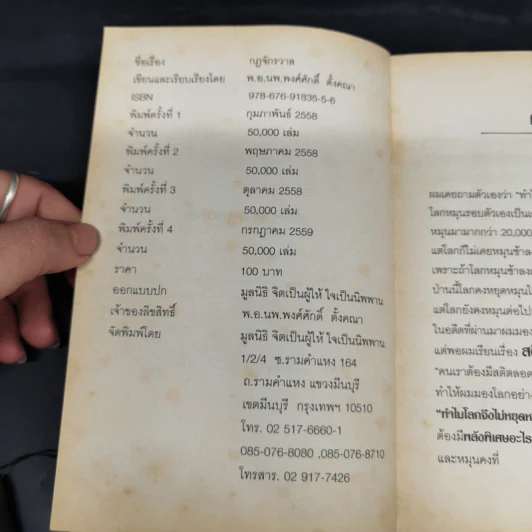 ชื่อเรื่อง กฎจักรวาล
เขียนและเรียบเรียงโดย พ.อ.นพ.พงศ์ศักดิ์ ตั้งคณา
ISBN 978-676-91835-5-6
พิมพ์ครั้งที่ 1 กุมภาพันธ์ 2558
จำนวน 50,000 เล่ม
พิมพ์ครั้งที่ 2 พฤษภาคม 2558
จำนวน 50,000 เล่ม
พิมพ์ครั้งที่ 3 ตุลาคม 2558
จำนวน 50,000 เล่ม
พิมพ์ครั้งที่ 4 กรกฎาคม 2559
จำนวน 50,000 เล่ม
ราคา 100 บาท
ออกแบบปก มูลนิธิ จิตเป็นผู้ให้ ใจเป็นนิพพาน
เจ้าของลิขสิทธิ์ พ.อ.นพ.พงศ์ศักดิ์ ตั้งคณา
จัดพิมพ์โดย มูลนิธิ จิตเป็นผู้ให้ ใจเป็นนิพพาน
1/2/4 ซ.รามคำแหง 164
ถ.รามคำแหง แขวงมีนบุรี
เขตมีนบุรี กรุงเทพฯ 10510
โทร. 02 517-6660-1
085-076-8080 ,085-076-8710
โทรสาร. 02 917-7426
ผมเคยถามตัวเองว่า "ทำไ
โลกหมุนรอบตัวเองเป็นเ
หมุนมามากกว่า 20,000
แต่โลกก็ไม่เคยหมุนช้าลง
เพราะถ้าโลกหมุนช้าลงก
ป่านนี้โลกคงหยุดหมุนไ
แต่โลกยังคงหมุนต่อไป
ในอดีตที่ผ่านมาผมมอง
แต่พอผมเรียนเรื่อง สติ
"คนเราต้องมีสติตลอด
ทำให้ผมมองโลกอย่าง
"ทำไมโลกจึงไม่หยุดห
ต้องมีพลังพิเศษอะไร
และหมุนคงที่